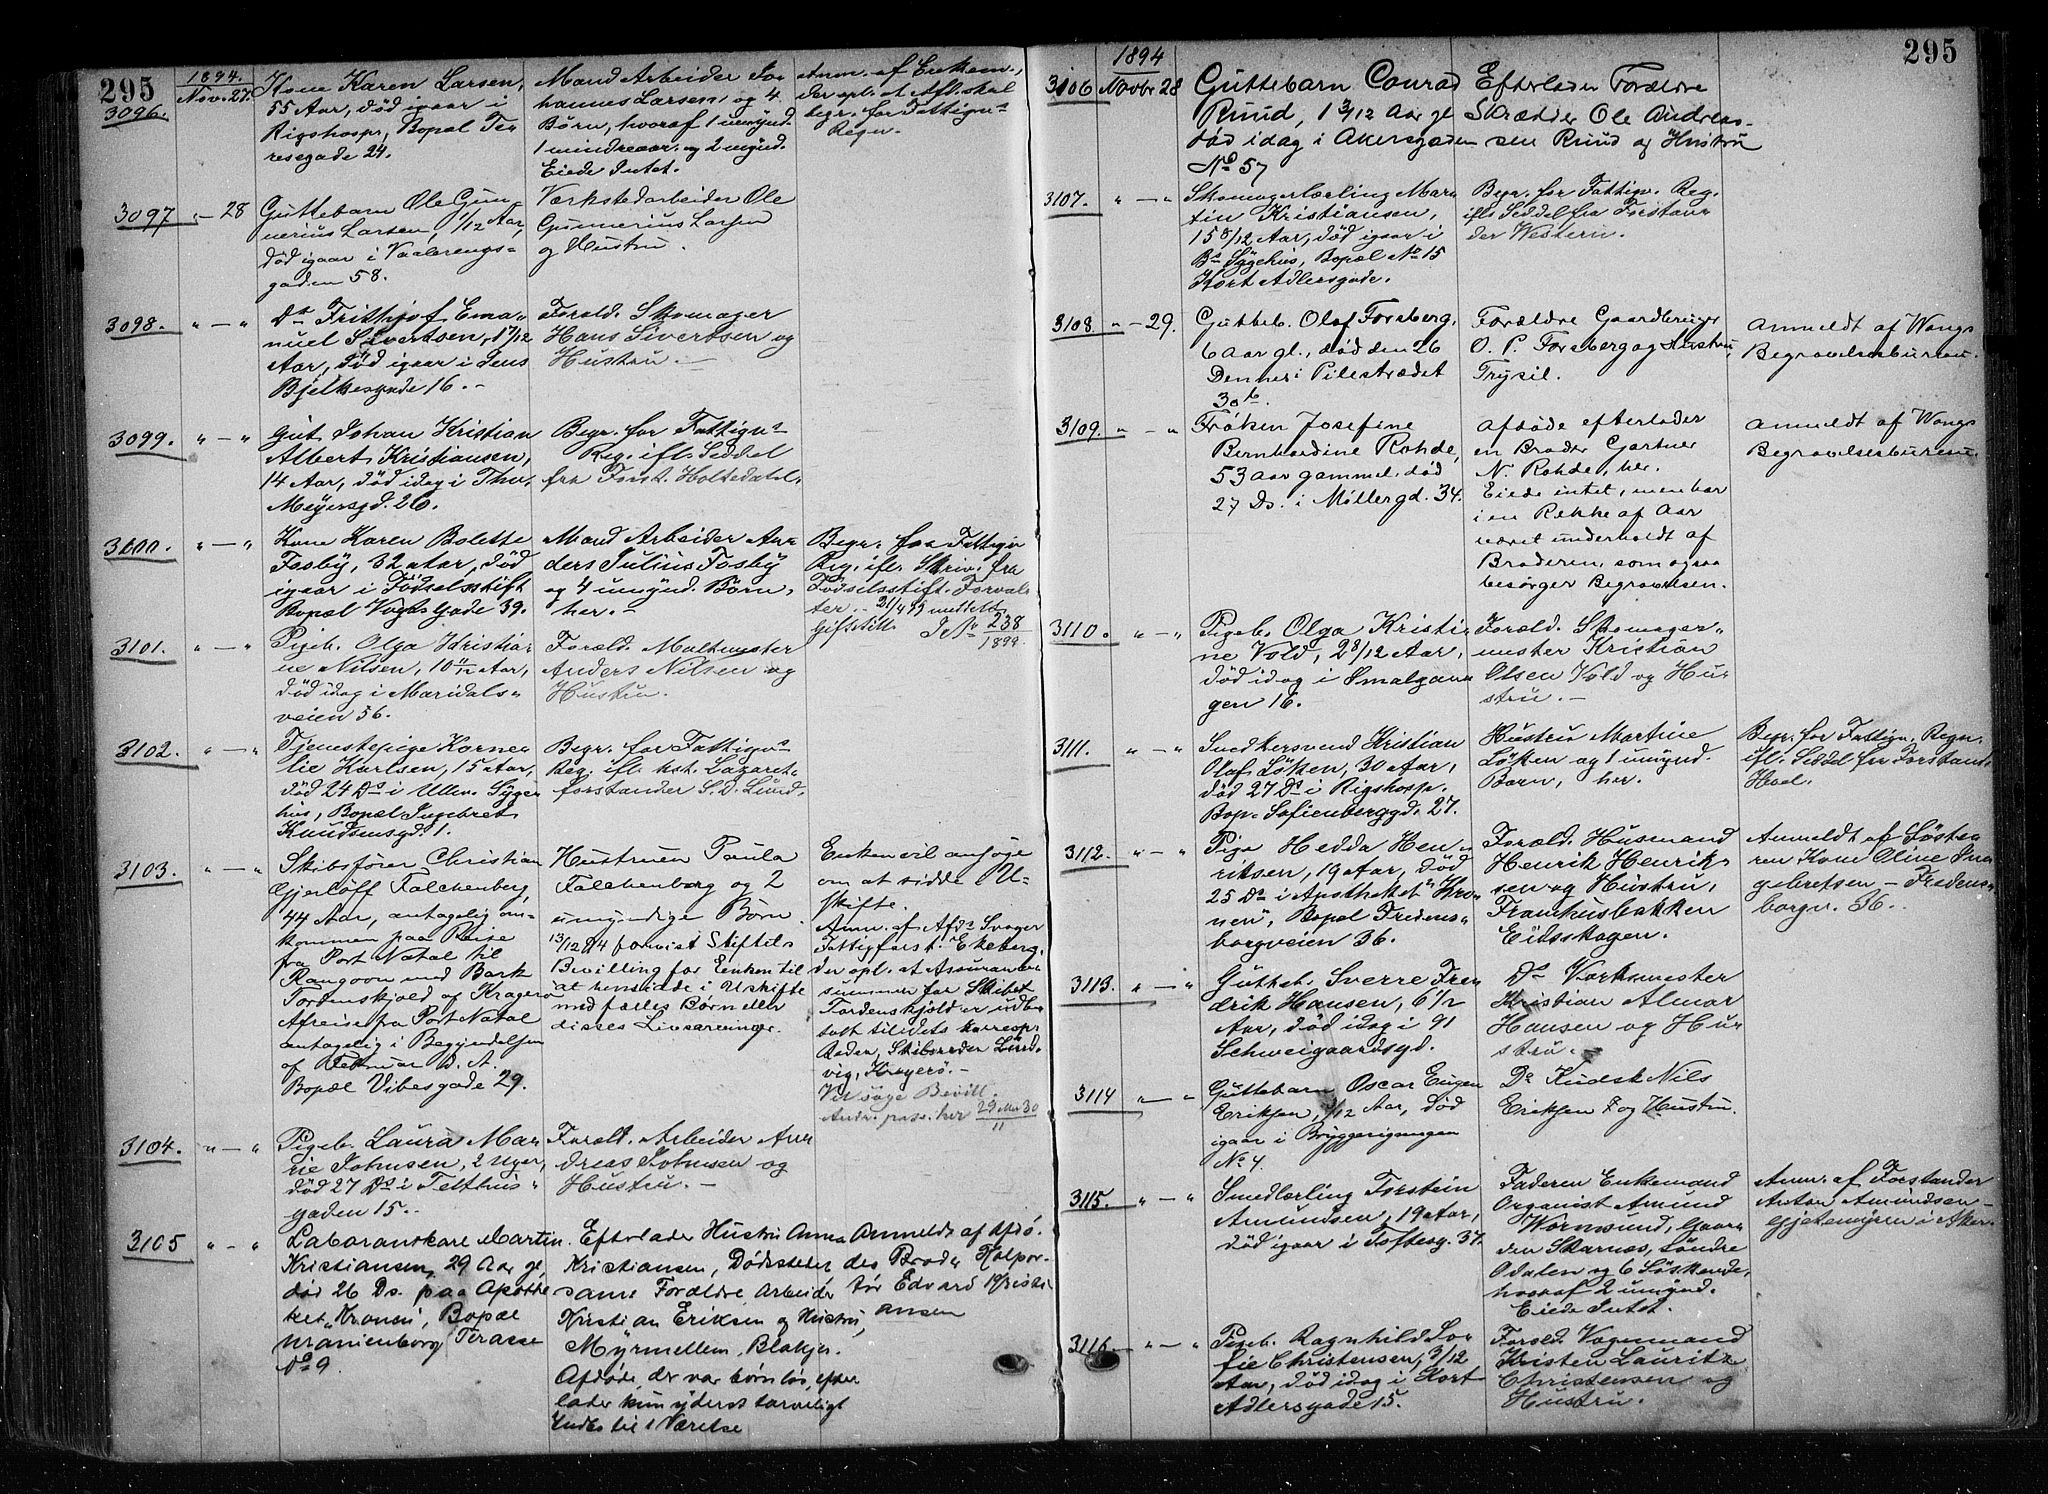 295
1894.
3096.
Nov. 27.
Kone Karen Larsen,
55 Aar, død igaar i
Rigshosp., Bopæl Te-
resegade 24.
Mand Arbeider Jo-
hannes Larsen, og 4
Børn, hvoraf 1 umynd.
1 mindreaar. og 2 mynd.
Eiede Intet.
Anm. af Enkem.,
der opl. at Afl. skal
begr. for Fattigv.s
Regn.
3097
" - 28
Guttebarn Ole Gun-
nerius Larsen, 1/12 Aar,
død igaar i Vaalerengs-
gaden 58.
Værkstedarbeider Ole
Gunnerius Larsen
og Hustru.
3098.
" — "
Do Frithjof Ema-
nuel Sivertsen, 1 7/12
Aar, død igaar i Jens
Bjelkesgade 16. -
Foræld. Skomager
Hans Sivertsen og
Hustru. —
3099.
" — "
Gut Johan Kristian
Albert Kristiansen,
14 Aar, død idag i Thv.
Meyersgd. 26.
Begr. for Fattigv.s
Reg. ifl. Seddel
fra Forst. Holtedahl.
3100.
" — "
Kone Karen Bolette
Fosby, 32 Aar, død
igaar i Fødselsstift.
Bopæl Vogts Gade 39.
Mand Arbeider An-
ders Julius Fosby
og 4 umynd. Børn,
her. -
Begr. for Fattigv.
Reg. ifl. Skriv. fra
Fødselsstift. Forval-
ter. - 21/4 99 meddelt
Giftstill. J. No 238
1899.
3101.
" — "
Pigeb. Olga Kristia-
ne Nilsen, 10 11/12 Aar,
død idag i Maridals-
veien 56.
Foræld. Maltmester
Anders Nilsen og
Hustru.
3102.
" — "
Tjenestepige Korne-
lie Karlsen, 15 Aar,
død 24 Ds i Ullev. Syge-
hus, Bopæl Ingebret
Knudsensgd. 1.
Begr. for Fattigv.s
Reg. ifl. kst. Lazaret-
forstander S. D. Lund.
3103.
" — "
Skibsfører Christian
Gjerløff Falchenberg,
44 Aar, antagelig om-
kommen paa Reise
fra Port Natal til
Rangoon med Bark
Tordenskjold af Kragerø
Afreise fra Port Natal
antagelig i Begyndelsen
af Februar D. A.
Bopæl Vibesgade 29.
Hustruen Paula
Falchenberg og 2
umyndige Børn.
13/12 94 forevist Stiftets
Bevilling for Enken til
at hensidde i Uskifte
med fælles Børn eller
disses Livsarvinger.
Enken vil ansøge
om at sidde i U-
skifte.
Anm. af Afds Svoger
Fattigforst. Ekeberg,
der opl. at Assurance-
summen for Skibet
Tordenskjold er udbe-
talt til dets korresp.
Reder, Skibsreder Lund-
vig, Kragerø. -
Vil søge Bevill.
3104.
" — "
Pigeb. Laura Ma-
rie Johnsen, 2 Uger,
død 27 Ds i Telthus-
gaden 15. -
Foræld. Arbeider An-
dreas Johnsen og
Hustru. -
3105
" — "
Laboratoriekarl Martin
Kristiansen, 29 Aar gl.
død 26 Ds. paa Apothe-
ket "Kronen", Bopæl
Uranienborg Terasse
No 9.
Efterlader Hustru Anna
Kristiansen, Dødsstedet
samt Forældre Arbeider
Kristian Eriksen og Hustru,
Myrmellem, Blakjer.
Afdøde, der var børnløs, efter-
lader kun yderst tarveligt
Indbo til 1 Værelse
Anmeldt af Afdø-
des Broder Kolpor-
tør Edvard Kristi-
ansen
295
1894
3106
Novbr 28
Guttebarn Conrad
Ruud, 1 3/12 Aar gl.
død idag i Akersgaden
No 57
Efterlader Forældre
Skrædder Ole Andreas-
sen Ruud og Hustru
3107.
" — "
Skomagerlærling Mar-
tin Kristiansen,
15 8/12 Aar, død igaar i
Bs Sygehus, Bopæl No 15
Kort Adlersgade.
Begr. for Fattigv. Reg.
ifl. Seddel fra Forstan-
der Western.
3108
" — 29.
Gutteb. Olaf Forsberg,
6 Aar gl., død den 26
Dennes i Pilestrædet
30 b.
Forældre Gaardbruger
O. P. Forsberg og Hustru,
Trysil.
Anmeldt af Wangs
Begravelsesbureau.
3109.
" — "
Frøken Josefine
Bernhardine Rohde,
53 Aar gammel, død
27 Ds. i Møllergd. 34.
Afdøde efterlader
en Broder Gartner
N. Rohde, her.
Eiede intet, men har
i en Række af Aar
været underholdt af
Broderen, som ogsaa
besørger Begravelsen.
Anmeldt af Wangs
Begravelsesbureau.
3110.
" — "
Pigeb. Olga Kristi-
ne Vold, 2 8/12 Aar,
død idag i Smalgan-
gen 16.
Foræld. Skomager-
mester Kristian
Olsen Vold og Hu-
stru. -
3111.
" — "
Smedkersvend Kristian
Olaf Løkken, 30 Aar,
død 27 Ds i Rigshosp.
Bop. Sofienberggd. 27.
Hustru Martine
Løkken og 1 umynd.
Barn, her.
Begr. for Fattigv. Regn.
ifl. Seddel fra Forstand.
3112.
" — "
Pige Hedda Hen-
riksen, 19 Aar, død
25 Ds i Apotheket "Kro-
nen", Bopæl Fredens-
borgveien 36.
Foræld. Husmand
Henrik Henrik-
sen og Hustru,
Framhusbakken
Eidsskogen.
Anmeldt af Søste-
ren Kone Oline In-
gebretsen - Fredens-
borgv. 36.
3113.
" — "
Gutteb. Sverre Fre-
drik Hansen, 6 1/2
Aar, død idag i 91
Schweigaardsgd.
Do Værkmester
Kristian Almar
Hansen og Hu-
stru. -
3114
" — "
Guttebarn Oscar Eugen
Eriksen, 1/12 Aar, død
igaar i Bryggerigangen
No 4.
Do Kudsk Nils
Eriksen F og Hustru.
3115.
" — "
Smedlærling Torstein
Amundsen, 19 Aar,
død igaar i Toftesg. 37.
Faderen Enkemand
Organist Amund
Wormsund, Gaar-
den Skarnæs, Søndre
Odalen og 6 Søskende,
hvoraf 2 umynd.
Eiede Intet.
Anm. af Forstander
Anton Amundsen -
Gjetemyren i Aker.
3116.
" — "
Pigeb. Ragnhild So-
fie Christensen, 3/12
Aar, død idag i Kort
Adlersgade 15.
Foræld. Vognmand
Kristen Lauritz
Christensen og
Hustru.